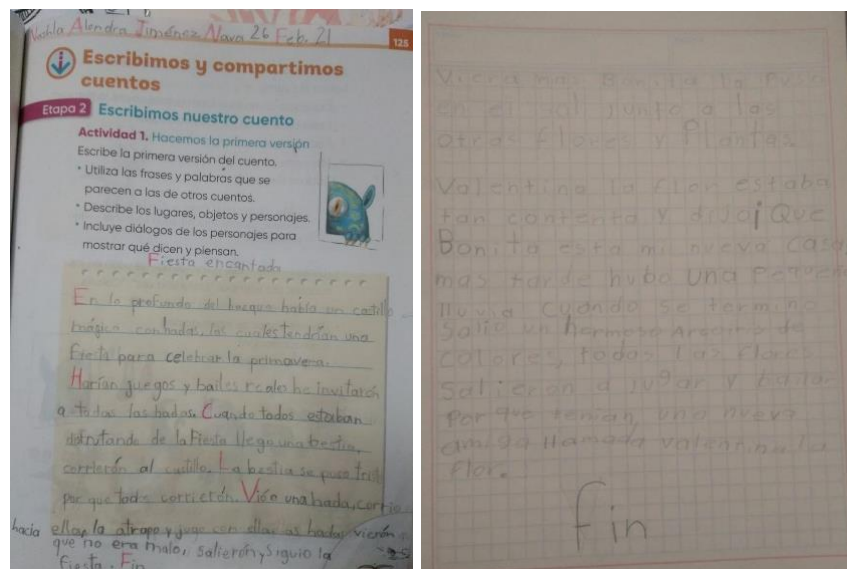 Alendra Jiménez Nava 26 Feb. 21
125
Escribimos y compartimos
cuentos
Etapa 2 Escribimos nuestro cuento
Actividad 1. Hacemos la primera versión
Escribe la primera versión del cuento.
* Utiliza las frases y palabras que se
parecen a las de otros cuentos.
* Describe los lugares, objetos y personajes.
* Incluye diálogos de los personajes para
mostrar qué dicen y piensan.
Fiesta encantada
En lo profundo del había un castillo
mágico con hadas, las cuales tendrían una
fiesta para celebrar la primavera.
Harían juegos y bailes invitarón
a todas las hadas. Cuando todos estaban
disfrutando de la fiesta llego una bestia,
corrierón al castillo. La bestia se puso triste
por que todos corrierón. Vió a una hada, corrio
hacia ella, la atrapo y jugo con ella, las hadas vierón
que no era malo, salierón y siguio la
fiesta. Fin
mas Bonita la
en el junto a las
otras flores y Plantas.
Valentina la flor estaba
tan contenta y dijo ¡Que
Bonita esta mi nueva casa
mas tarde hubo una Pequeña
lluvia cuando se termino
salio un hermoso Arcoiris de
colores, todos las flores
salieron a jugar y bailar
Por que tenian, una nueva
amiga llamada valentina la
flor.
fin